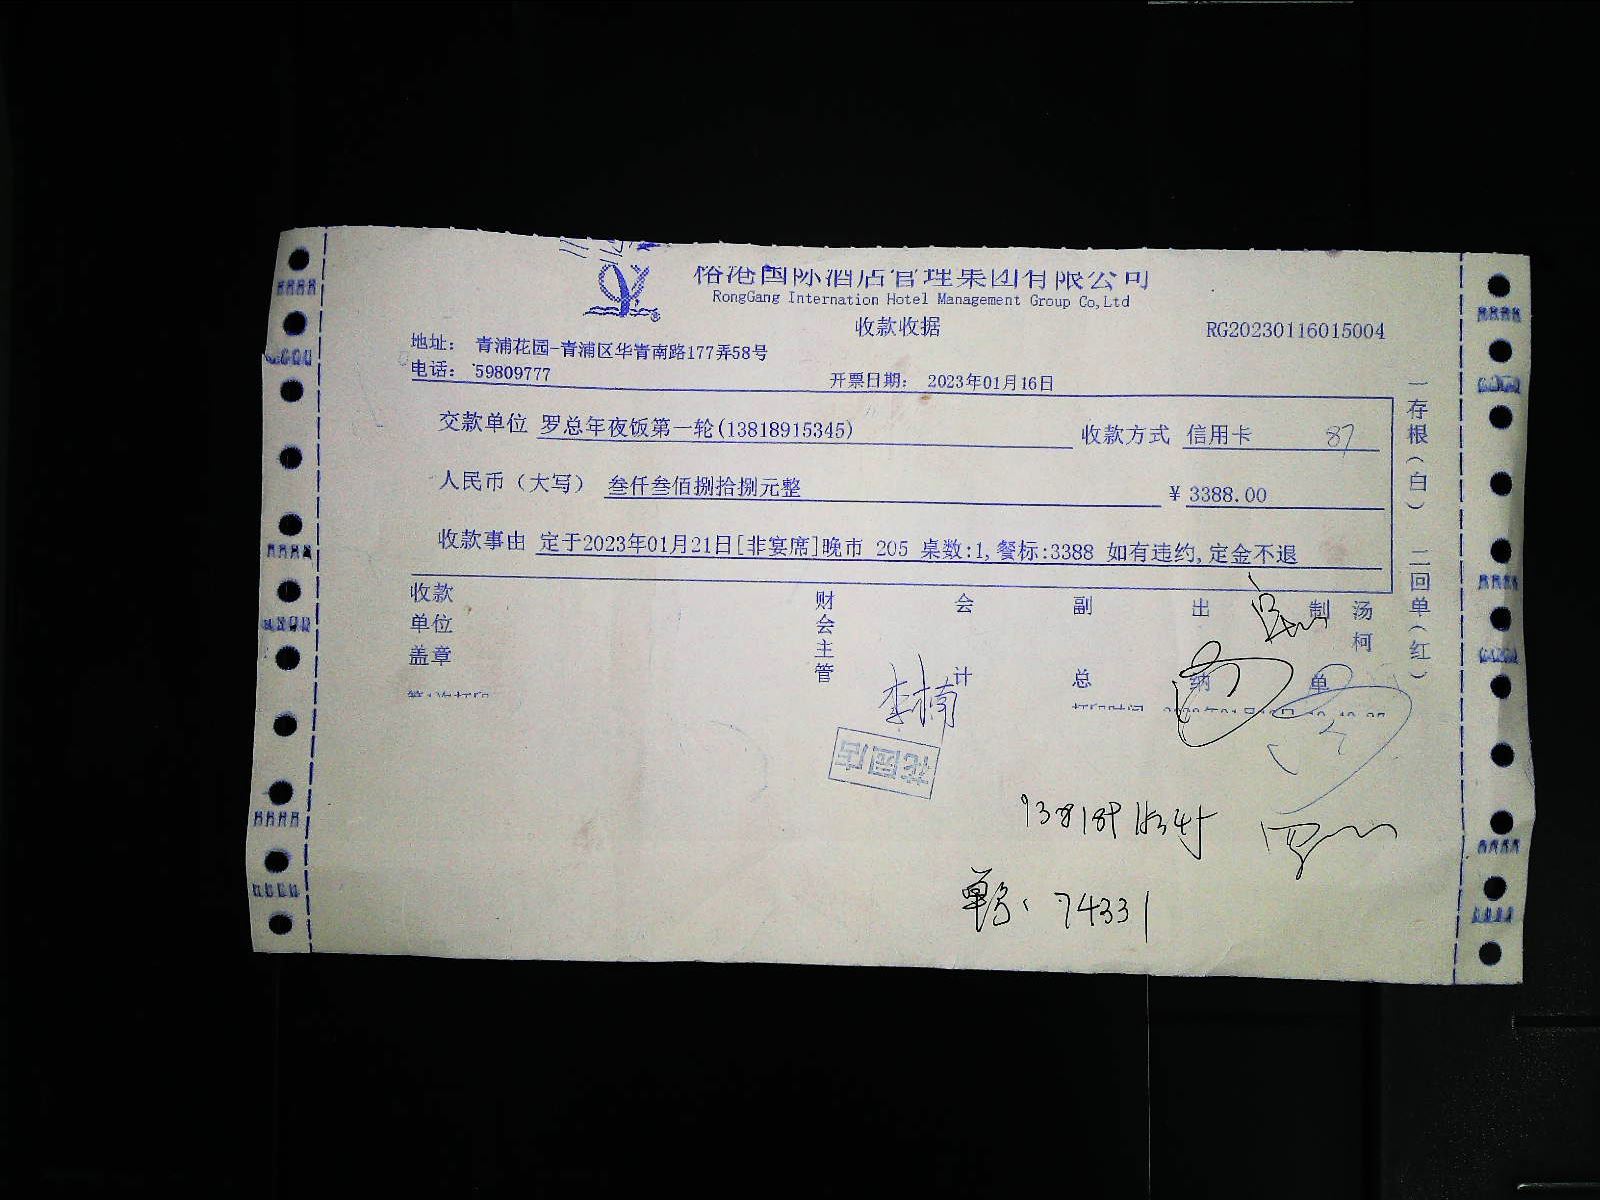 俗港国际酒店管理集团有限公司
RongGang Internation Hotel Management Group Co,Ltd
收款收据
RG20230116015004
地址： 青浦花园-青浦区华青南路177弄58号
电话： 59809777
开票日期： 2023年01月16日
交款单位 罗总年夜饭第一轮(13818915345)
收款方式 信用卡 87
人民币（大写） 叁仟叁佰捌拾捌元整
¥ 3388.00
收款事由 定于2023年01月21日[非宴席]晚市 205 桌数:1,餐标:3388 如有违约,定金不退
收款单位盖章
财会主管
会计
副总
出纳
制单
汤柯
李楠
花园店
单号: 74331
一存根（白） 二回单（红）